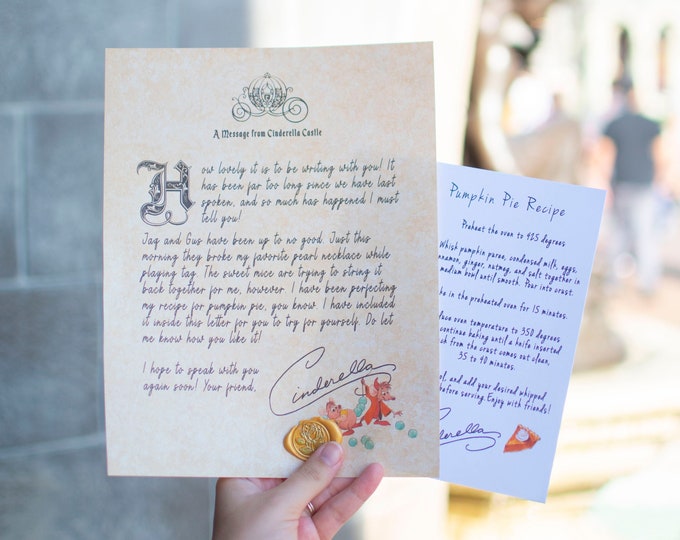 A Message from Cinderella Castle
How lovely it is to be writing with you! It
has been far too long since we have last
spoken, and so much has happened I must
tell you!
Jaq and Gus have been up to no good. Just this
morning they broke my favorite pearl necklace while
playing tag. The sweet mice are trying to string it
back together for me, however. I have been perfecting
my recipe for pumpkin pie, you know. I have included
it inside this letter for you to try for yourself. Do let
me know how you like it!
I hope to speak with you
again soon! Your friend,
Cinderella
Pumpkin Pie Recipe
Preheat the oven to 425 degrees
Whisk pumpkin puree, condensed milk, eggs,
ginger, nutmeg, and salt together in
medium bowl until smooth. Pour into crust.
in the preheated oven for 15 minutes.
oven temperature to 350 degrees
continue baking until a knife inserted
from the crust comes out clean,
35 to 40 minutes.
and add your desired whipped
before serving. Enjoy with friends!